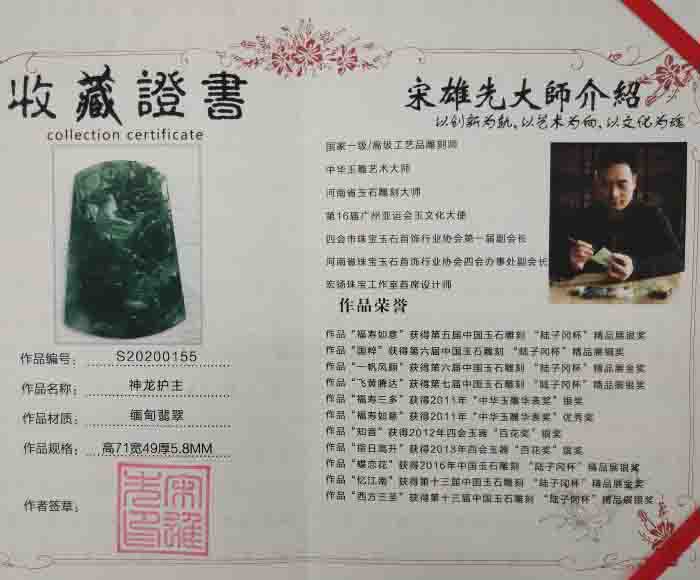 收藏證書
collection certificate
作品编号: S20200155
作品名称: 神龙护主
作品材质: 缅甸翡翠
作品规格: 高71宽49厚5.8MM
作者签章:
宋雄先大師介紹
以创新为轨、以艺术为向、以文化为魂
国家一级/高级工艺品雕刻师
中华玉雕艺术大师
河南省玉石雕刻大师
第16届广州亚运会玉文化大使
四会市珠宝玉石首饰行业协会第一届副会长
河南省珠宝玉石首饰行业协会四会办事处副会长
宏扬珠宝工作室首席设计师
作品荣誉
作品“福寿如意”获得第五届中国玉石雕刻 “陆子冈杯”精品展银奖
作品“国粹”获得第六届中国玉石雕刻 “陆子冈杯”精品展铜奖
作品“一帆风顺”获得第六届中国玉石雕刻 “陆子冈杯”精品展金奖
作品“飞黄腾达”获得第七届中国玉石雕刻 “陆子冈杯”精品展银奖
作品“福寿三多”获得2011年“中华玉雕华表奖”银奖
作品“福寿如意”获得2011年“中华玉雕华表奖”优秀奖
作品“知音”获得2012年四会玉器“百花奖”铜奖
作品“指日高升”获得2013年四会玉器“百花奖”银奖
作品“蝶恋花”获得2016年中国玉石雕刻 “陆子冈杯”精品展银奖
作品“忆江南”获得第十三届中国玉石雕刻 “陆子冈杯”精品展金奖
作品“西方三圣”获得第十三届中国玉石雕刻 “陆子冈杯”精品展银奖